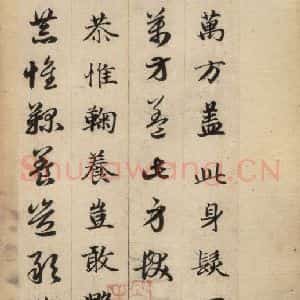 萬方蓋此身髮
萬方蓋此身髮
恭惟鞠養豈敢
恭惟鞠養豈敢
Shufawang.CN